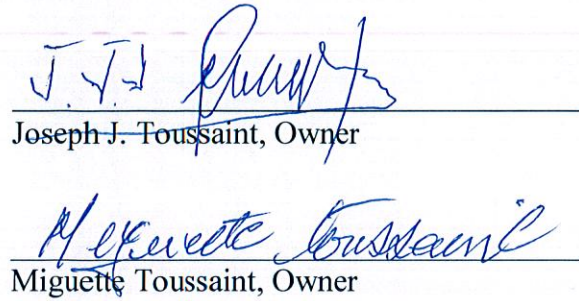 Joseph J. Toussaint, Owner
Miguette Toussaint
Miguette Toussaint, Owner